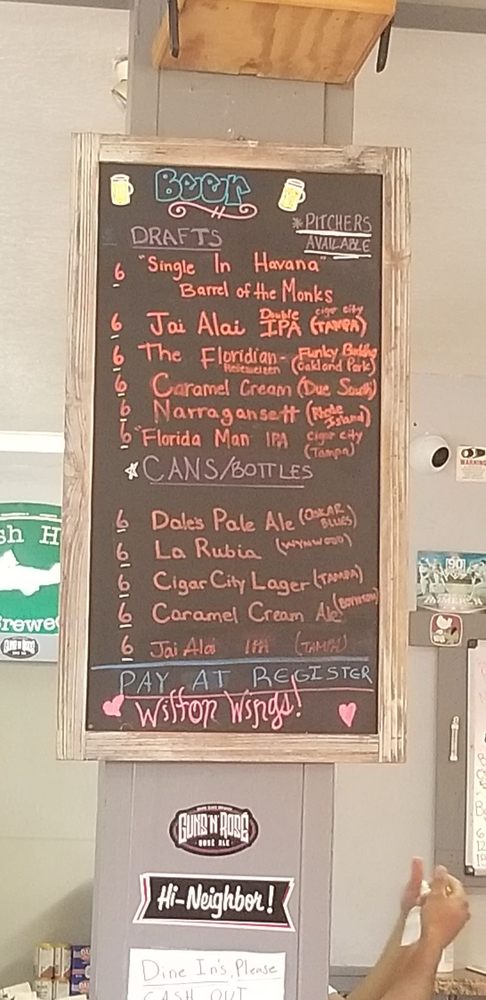 Beer
DRAFTS
*PITCHERS
AVAILABLE
6 "Single In Havana"
Barrel of the Monks
6 Jai Alai Double IPA cigar city (TAMPA)
6 The Floridian- Hefeweizen Funky Buddha (Oakland Park)
6 Caramel Cream (Due South)
6 Narragansett (Rhode Island)
6 "Florida Man IPA cigar city (Tampa)
*CANS/BOTTLES
6 Dale's Pale Ale (OSKAR BLUES)
6 La Rubia (WYNWOOD)
6 Cigar City Lager (TAMPA)
6 Caramel Cream Ale
6 Jai Alai IPA (TAMPA)
PAY AT REGISTER
Wilton Wings!
GUNS 'N' ROSÉ
ROSÉ ALE
Hi-Neighbor!
Dine In's, Please
CASH OUT
sh H
rewe
GUNS 'N' ROSÉ
WARNING
90